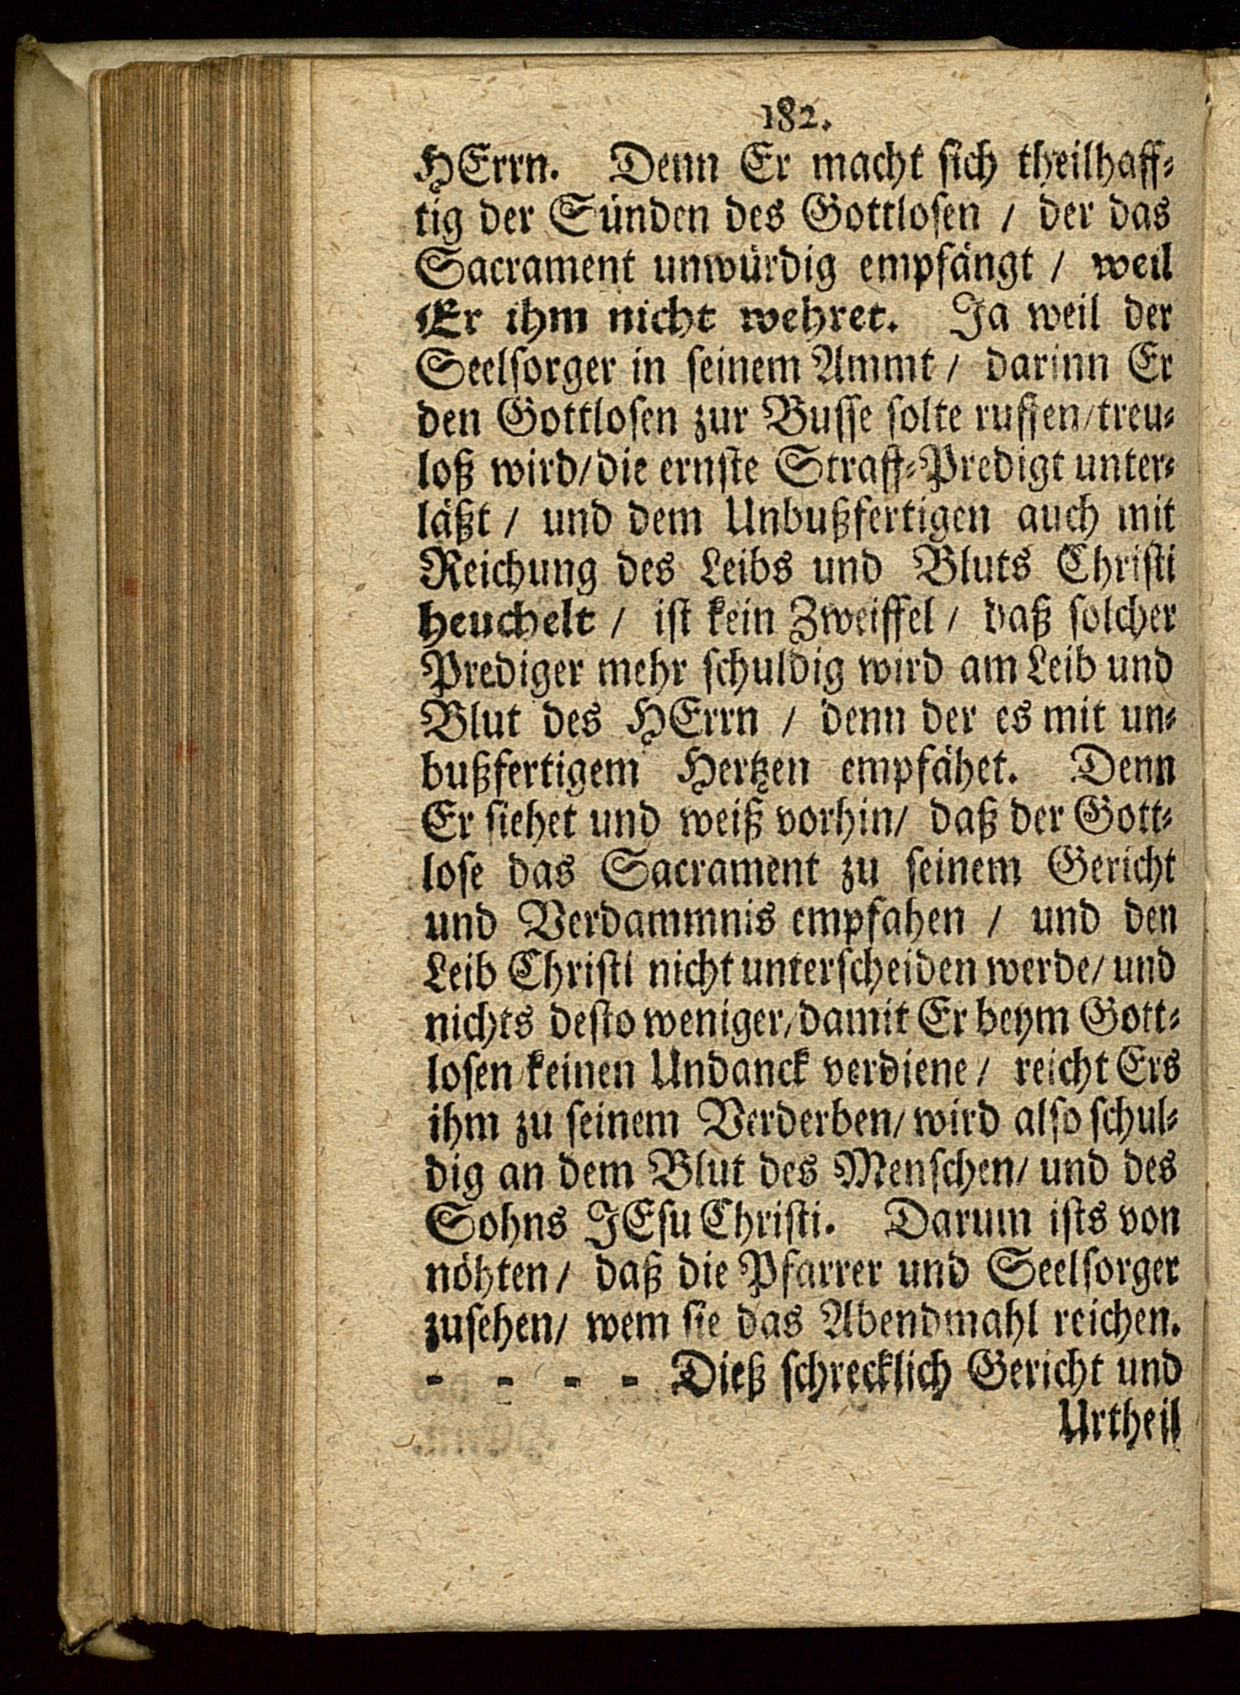 182.
HErrn. Denn Er macht sich theilhaff⸗
tig der Sünden des Gottlosen / der das
Sacrament unwürdig empfängt / weil
Er ihm nicht wehret. Ja weil der
Seelsorger in seinem Ammt / darinn Er
den Gottlosen zur Busse solte ruffen/treu⸗
loß wird/die ernste Straff⸗Predigt unter⸗
läßt / und dem Unbußfertigen auch mit
Reichung des Leibs und Bluts Christi
heuchelt / ist kein Zweiffel / daß solcher
Prediger mehr schuldig wird am Leib und
Blut des HErrn / denn der es mit un⸗
bußfertigem Hertzen empfähet. Denn
Er siehet und weiß vorhin/ daß der Gott⸗
lose das Sacrament zu seinem Gericht
und Verdammnis empfahen / und den
Leib Christi nicht unterscheiden werde/ und
nichts desto weniger/damit Er beym Gott⸗
losen keinen Undanck verdiene / reicht Ers
ihm zu seinem Verderben/ wird also schul⸗
dig an dem Blut des Menschen/ und des
Sohns JEsu Christi. Darum ists von
nöhten / daß die Pfarrer und Seelsorger
zusehen/ wem sie das Abendmahl reichen.
- - - - Dieß schrecklich Gericht und
Urtheil